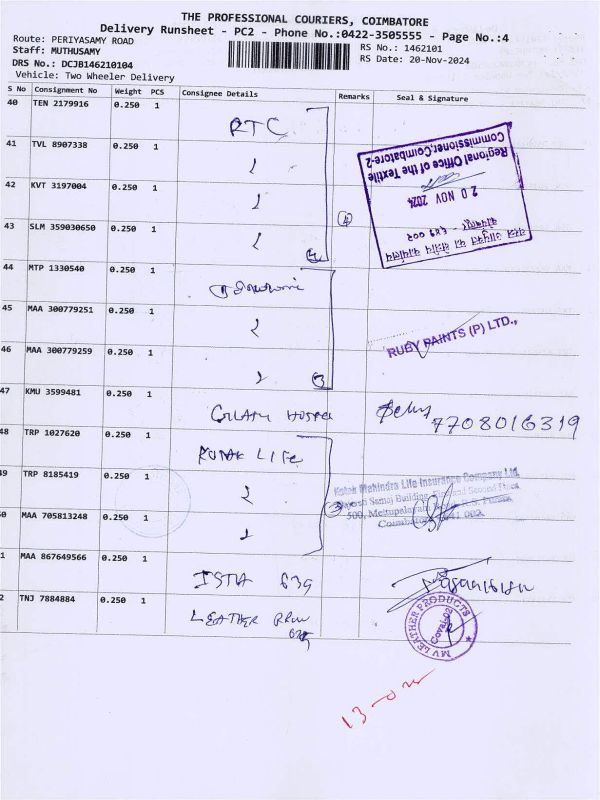 THE PROFESSIONAL COURIERS, COIMBATORE
Delivery Runsheet - PC2 - Phone No.:0422-3505555 - Page No.:4
Route: PERIYASAMY ROAD
RS No.: 1462101
Staff: MUTHUSAMY
RS Date: 20-Nov-2024
DRS No.: DCJB146210104
Vehicle: Two Wheeler Delivery
S No Consignment No Weight PCS Consignee Details Remarks Seal & Signature
40 TEN 2179916 0.250 1
RTC
41 TVL 8907338 0.250 1
42 KVT 3197004 0.250 1
43 SLM 359030650 0.250 1
4
Regional Office of the Textile
Commissioner, Coimbatore-2
20 NOV 2024
44 MTP 1330540 0.250 1
45 MAA 300779251 0.250 1
46 MAA 300779259 0.250 1
3
RUBY PAINTS (P) LTD.,
47 KMU 3599481 0.250 1
7708016319
48 TRP 1027620 0.250 1
KOTAK LIFE
49 TRP 8185419 0.250 1
0 MAA 705813248 0.250 1
3
Kotak Mahindra Life Insurance Company Ltd
500, Mettupalayam
Coimbatore 641 002.
1 MAA 867649566 0.250 1
639
2 TNJ 7884884 0.250 1
LEATHER
MV LEATHER PRODUCTS
Covai-02
13